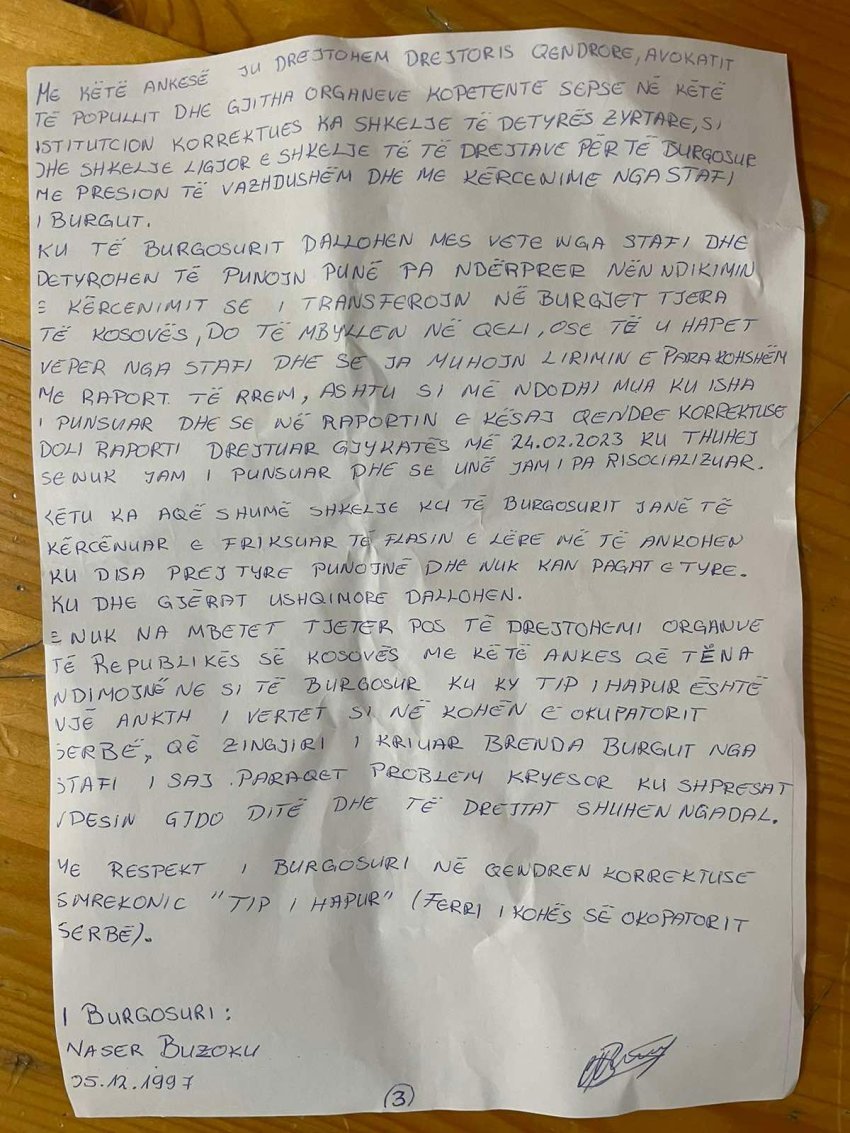 ME KËTË ANKESË JU DREJTOHEM DREJTORIS QENDRORE, AVOKATIT
TË POPULLIT DHE GJITHA ORGANEVE KOPETENTE SEPSE NË KËTË
ISTITUTCION KORREKTUES KA SHKELJE TË DETYRËS ZYRTARE, SI
DHE SHKELJE LIGJOR E SHKELJE TË TË DREJTAVE PËR TË BURGOSUR
ME PRESION TË VAZHDUSHËM DHE ME KËRCENIME NGA STAFI
I BURGUT.
KU TË BURGOSURIT DALLOHEN MES VETE NGA STAFI DHE
DETYROHEN TË PUNOJN PUNË PA NDËRPRER NËN NDIKIMIN
E KËRCENIMIT SE I TRANSFEROJN NË BURGJET TJERA
TË KOSOVËS, DO TË MBYLLEN NË QELI, OSE TË U HAPET
VEPER NGA STAFI DHE SE JA MUHOJN LIRIMIN E PARAKOHSHËM
ME RAPORT TË RREM, ASHTU SI MË NDODHI MUA KU ISHA
I PUNSUAR DHE SE NË RAPORTIN E KËSAJ QENDRE KORREKTUSE
DOLI RAPORTI DREJTUAR GJYKATËS MË 24.02.2023 KU THUHEJ
SE NUK JAM I PUNSUAR DHE SE UNË JAM I PA RISOCIALIZUAR.
KËTU KA AQË SHUMË SHKELJE KU TË BURGOSURIT JANË TË
KËRCËNUAR E FRIKSUAR TË FLASIN E LËRE MË TË ANKOHEN
KU DISA PREJ TYRE PUNOJNË DHE NUK KAN PAGAT E TYRE.
KU DHE GJËRAT USHQIMORE DALLOHEN.
E NUK NA MBETET TJETER POS TË DREJTOHEMI ORGANVE
TË REPUBLIKËS SË KOSOVËS ME KËTË ANKES QË TË NA
NDIMOJNË NE SI TË BURGOSUR KU KY TIP I HAPUR ËSHTË
NJË ANKTH I VERTET SI NË KOHËN E OKUPATORIT
SERBË, QË ZINGJIRI I KRIUAR BRENDA BURGUT NGA
STAFI I SAJ PARAQET PROBLEM KRYESOR KU SHPRESAT
VDESIN GJDO DITË DHE TË DREJTAT SHUHEN NGADAL.
ME RESPEKT I BURGOSURI NË QENDREN KORREKTUSE
SMREKONIC "TIP I HAPUR" (FERRI I KOHËS SË OKOPATORIT
SERBË).
I BURGOSURI:
NASER BUZOKU
05.12.1997
3